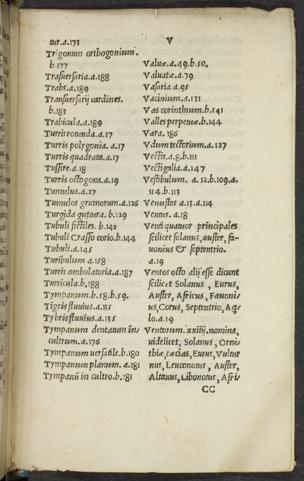 ter.a.173
Trigonum orthogonium.
b.177
Trasuersaria.a.188
Trabs.a.189
Transuersarij cardines.
b.183
Trabicula.a.189
Turris rotunda.a.17
Turris polygonia.a.17
Turris quadrata.a.17
Tussire.a.18
Turris octogona.a.19
Tumulus.a.27
Tumulos grumorum.a.126
Turgida gutura.b.129
Tubuli fictiles.b.142
Tubuli Crasso corio.b.144
Tubuli.a.145
Turibulum a.158
Turris ambulatoria.a.187
Turricula.b.188
Tympanum.b.58.b.59.
Tigris fluuius.a.135
Tybris fluuius.a.135
Tympanum dentatum in
cultrum.a.176
Tympanum uersatile.b.180
Tympanum planum.a.181
Tympanũ in cultro.b.181
V
Valuæ.a.49.b.50.
Valuatæ.a.79
Vasaria.a.95
Vacinium.a.131
Vas corinthium.b.141
Valles perpetuæ.b.144
Vara.186
Vdum tectorium.a.127
Vectis.a.8.b.111
Vectigalia.a.147
Vestibulum.a.12.b.109.a.
114.b.113
Venustas.a.13.a.114
Ventus.a.18
Venti quatuor principales
scilicet solanus, auster, fa-
uonius & septentrio.
a.19
Ventos octo alij esse dicunt
scilicet Solanus, Eurus,
Auster, Africus, Fauoni-
us, Corus, Septentrio, Aq
lo.a.19
Ventorum.xxiiij.nomina,
uidelicet, Solanus, Orni-
thiæ, cæcias, Eurus, Vultur
nus, Leuconotus, Auster,
Altanus, Libonotus, Afri
CC